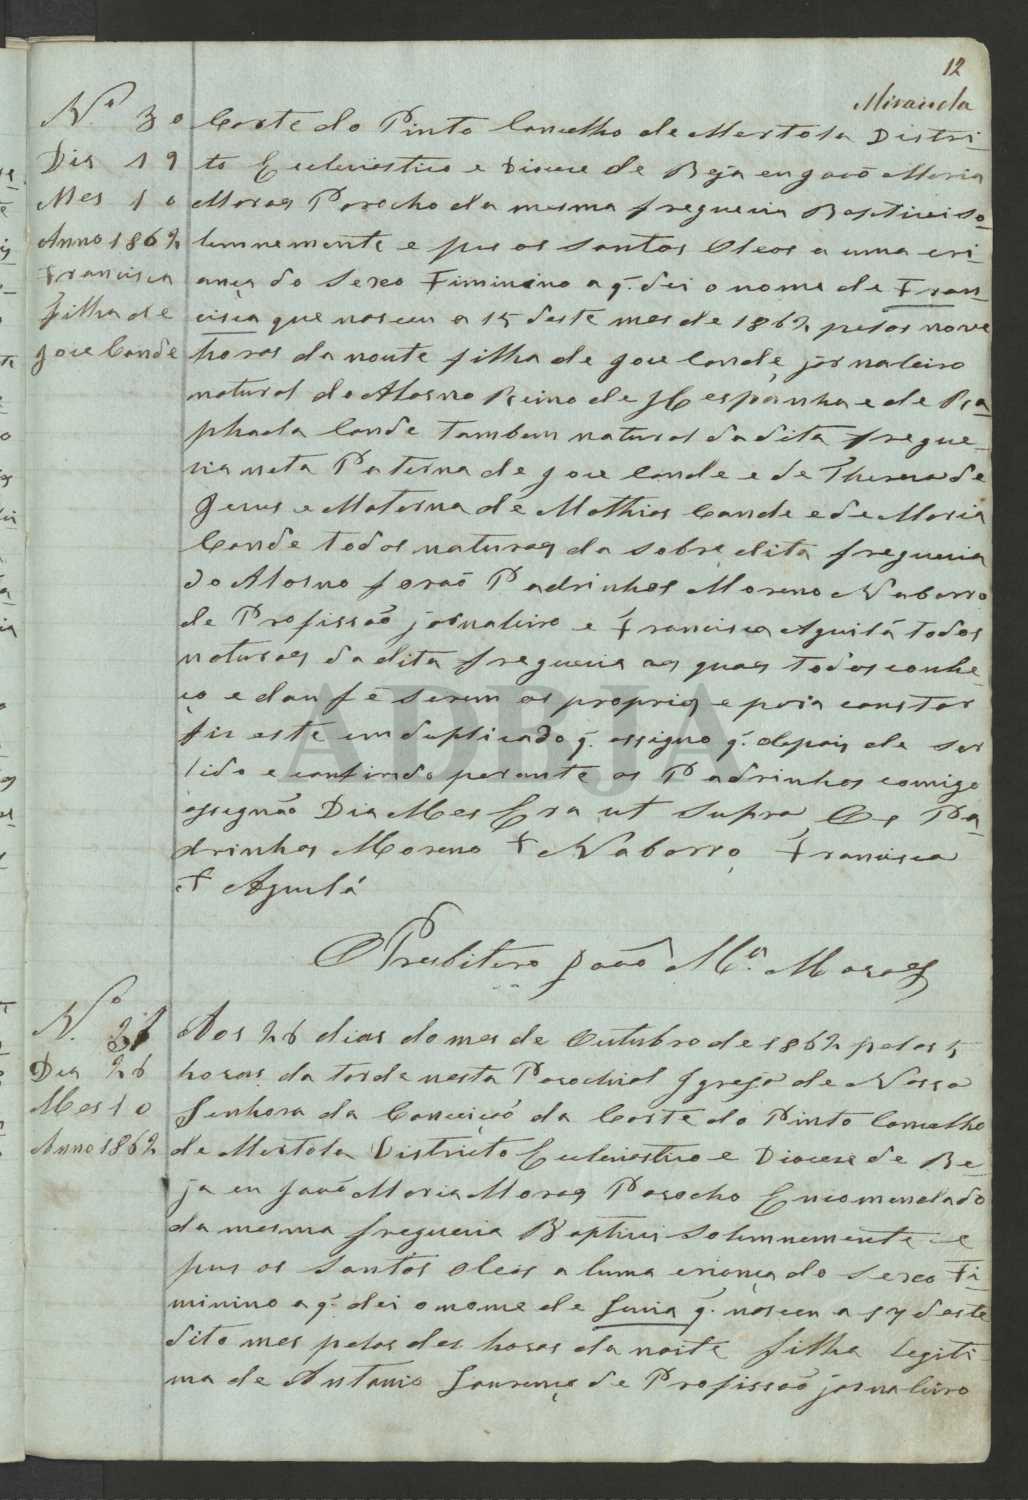 12
Miranda
N.º 30
Dia 19
Mes 10
Anno 1862
Francisca
filha de
Joze Conde
Corte do Pinto Concelho de Mertola Distri-
to Eccleziastico e Diocese de Beja eu João Maria
Moraes Parocho da mesma freguezia Baptizei so-
lemnemente e pus os Santos Oleos a uma cri-
ança do Sexo Fiminino a q. dei o nome de Fran-
cisca que nasceu a 15 deste mes de 1862 pelas nove
horas da noute filha de Joze Conde jornaleiro
natural do Alosno Reino de Hespanha e de Ra-
phaela Conde tambem natural da dita fregue-
zia neta Paterna de Joze Conde e de Thereza de
Jezus e Materna de Mathias Conde e de Maria
Conde todos naturaes da sobre dita freguezia
do Alosno forão Padrinhos Moreno Naborro
de Profissão jornaleiro e Francisca Aguilá todos
naturaes da dita freguezia os quaes todos conhe-
ço e dou fé serem os proprios e para constar
fiz este em duplicado q. assigno q. depois de ser
lido e conferido perante os Padrinhos comigo
assignão Dia Mes Era ut supra Os Pa-
drinhos Moreno + Naborro, Francisca
+ Aguilá
O Presbitero João M.ª Moraes
N.º 31
Dia 26
Mes 10
Anno 1862
Aos 26 dias do mes de Outubro de 1862 pelas 5
horas da tarde nesta Parochial Igreja de Nossa
Senhora da Conceição da Corte do Pinto Concelho
de Mertola Districto Eccleziastico e Diocese de Be-
ja eu João Maria Moraes Parocho Encomendado
da mesma freguezia Baptizei Solemnemente e
pus os Santos Oleos a huma criança do Sexo Fi-
minino a q. dei o nome de q. nasceu a 17 deste
dito mes pelas des horas da noite filha Legiti-
ma de Antonio Lourenço de Profissão jornaleiro
ADBJA